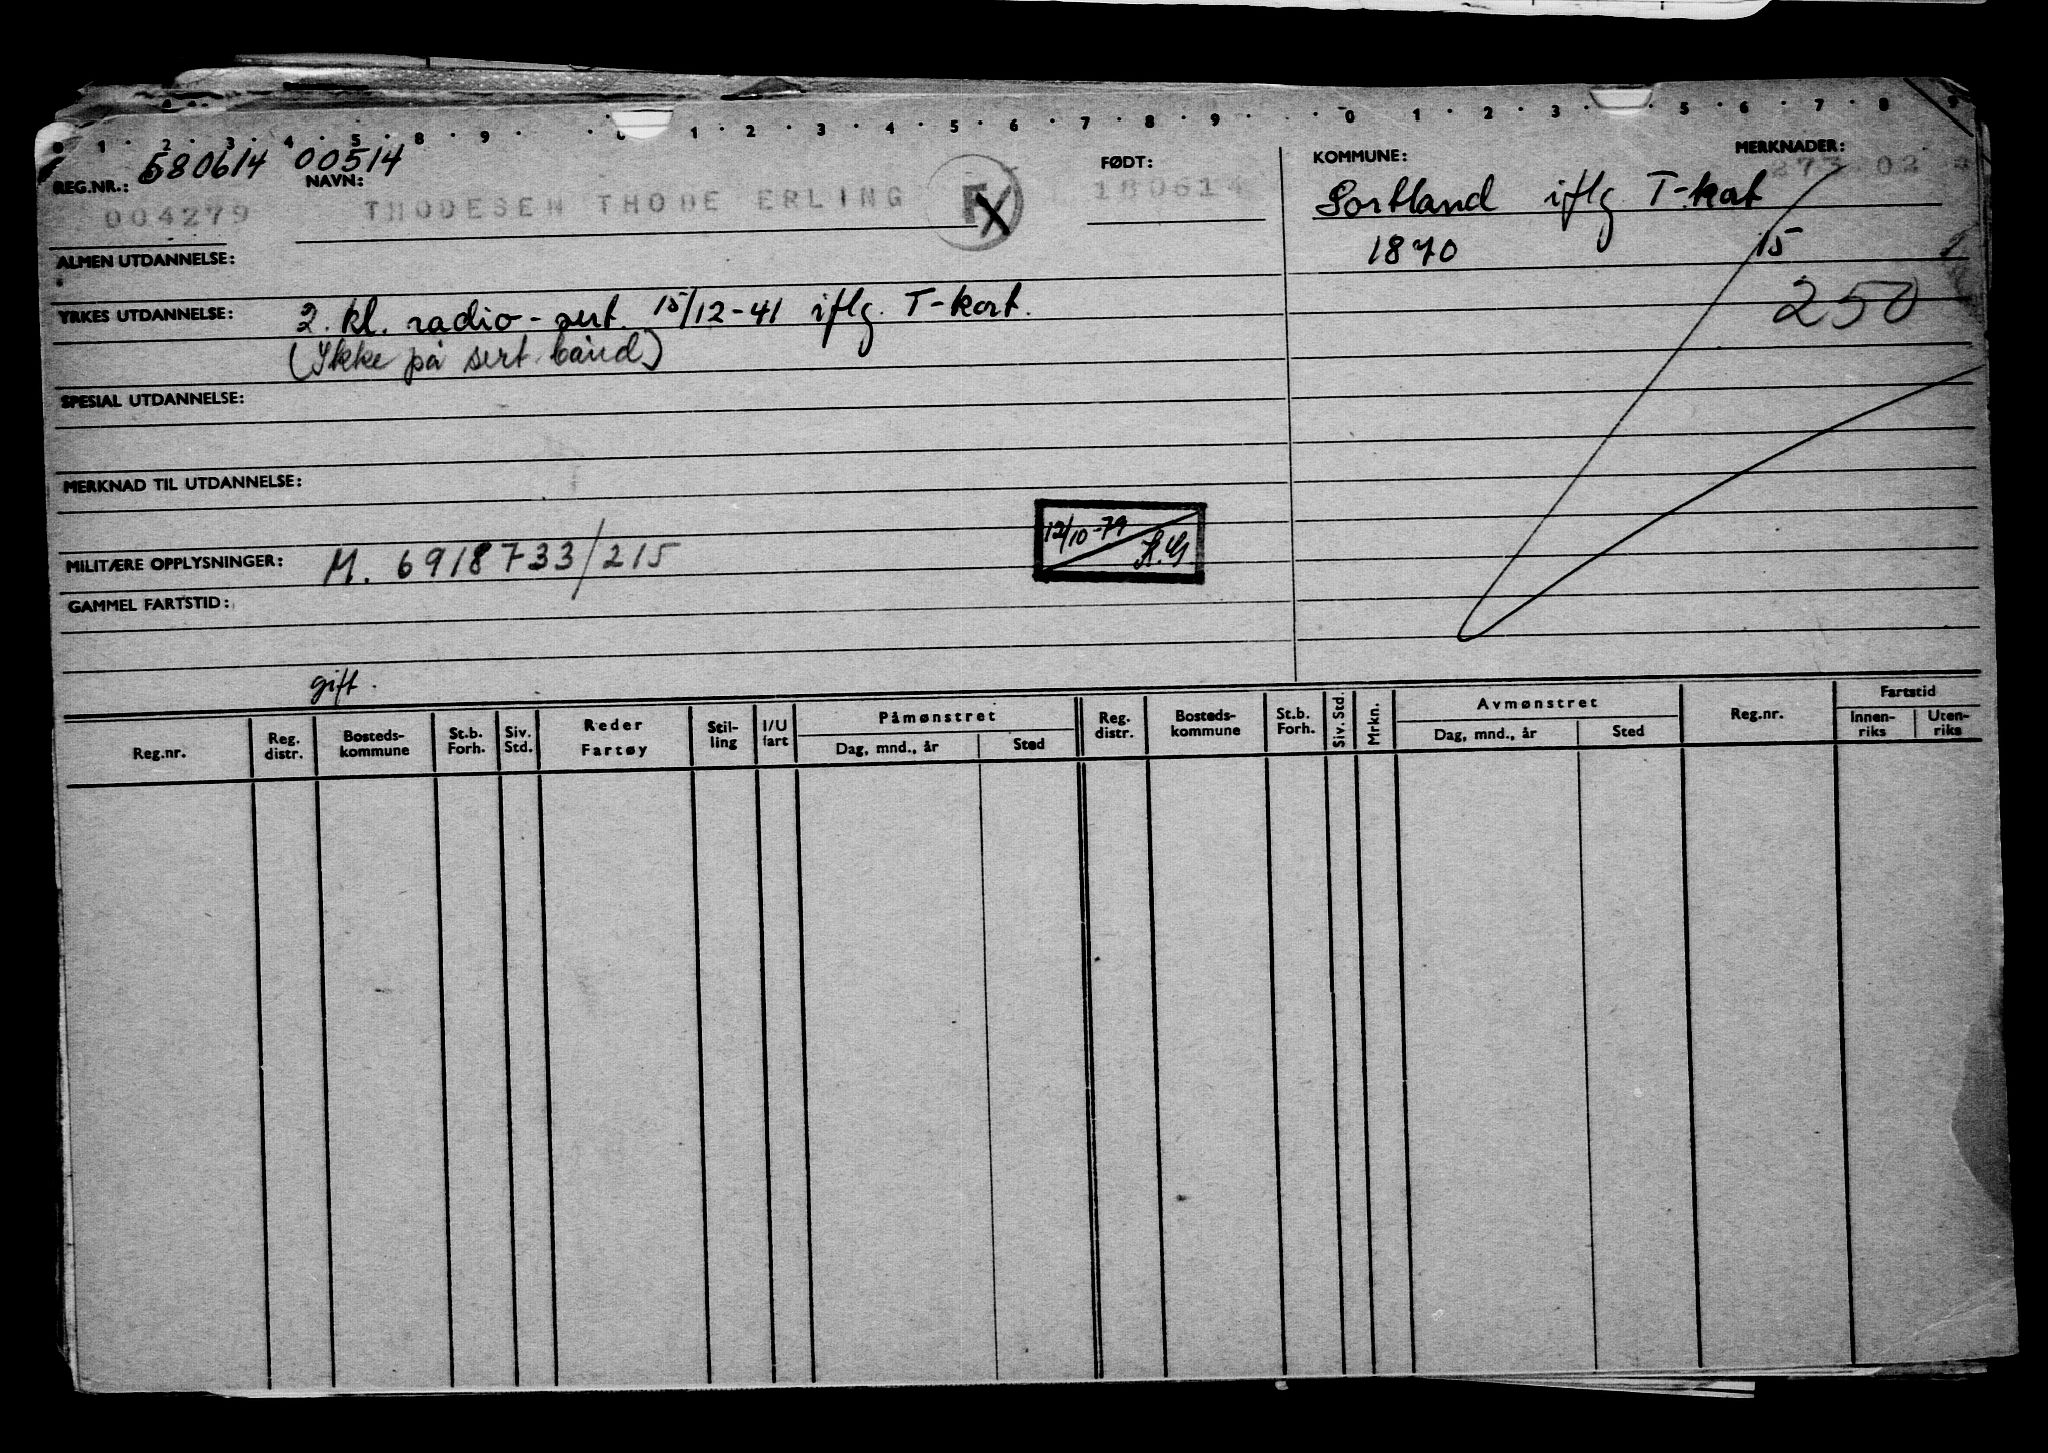 1 · 2 · 3 · 4 · 5 · 8 · 9 · · 1 · 2 · 3 · 4 · 5 · 6 · 7 · 8 · 9 · · 0 · 1 · 2 · 3 · 5 · 6 · 7 · 8 · 9
REG.NR.: 580614 00514
NAVN:
FØDT:
KOMMUNE:
MERKNADER:
004279 THODESEN THODE ERLING 180614
273 02
Sortland iflg T-kort
1870 15
250
ALMEN UTDANNELSE:
YRKES UTDANNELSE: 2. kl. radio-sert. 15/12-41 iflg. T-kort.
(Ikke på sert. bånd)
SPESIAL UTDANNELSE:
MERKNAD TIL UTDANNELSE:
12/10-79
MILITÆRE OPPLYSNINGER: M. 6918733/215
GAMMEL FARTSTID:
gift.
Reg.nr. Reg. distr. Bosteds-kommune St.b. Forh. Siv. Std. Reder Fartøy Stil-ling I/U fart Påmønstret Dag, mnd., år Sted Reg. distr. Bosteds-kommune St.b. Forh. Siv. Std. Mrkn. Avmønstret Dag, mnd., år Sted Reg.nr. Fartstid Innen-riks Uten-riks